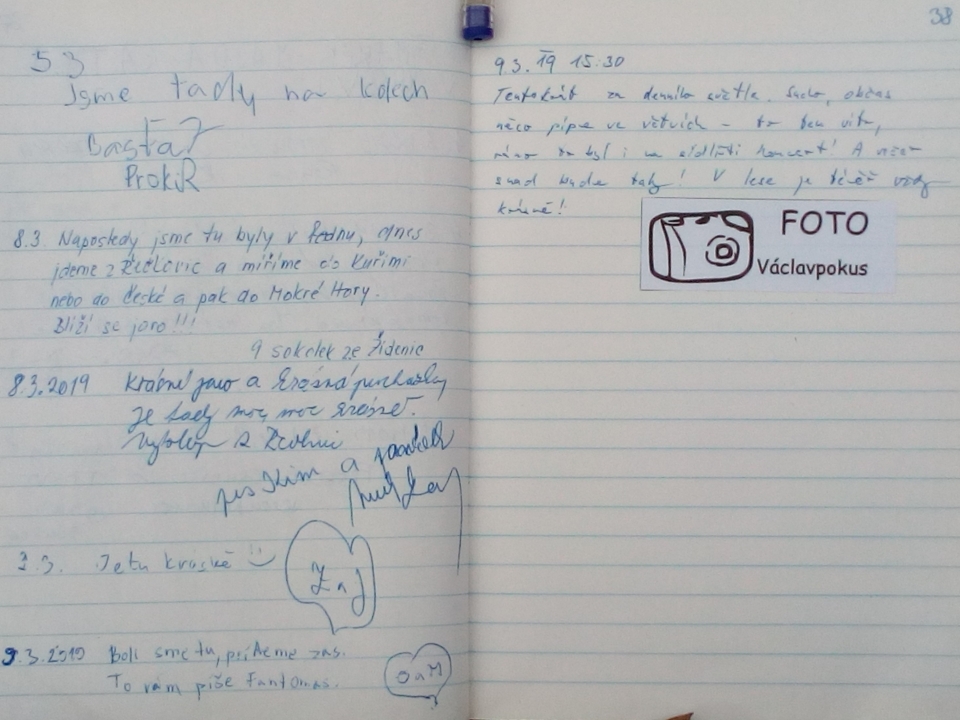 5.3
Jsme tady na kolech
Basta
Prokir
8.3 Naposledy jsme tu byly v lednu, dnes
jdeme z a míříme do Kuřimi
nebo do České a pak do Mokré Hory.
Blíží se jaro!!!
9 sokolek ze Židenic
8.3.2019 Krásné jaro a
Je tady moc moc krásně.
pes Kim a
9.3. Je tu krásně
Z a J
9.3.2019 Boli sme tu, prídeme zas.
To vám píše Fantomas.
O a M
38
9.3. 19 15:30
Tentokrát za denního světla. Sucho, občas
něco pípne ve větvích - to ten vítr,
ráno to byl i na sídlišti koncert! A večer
snad bude taky! V lese je téměř vždy
krásně!
FOTO
Václavpokus